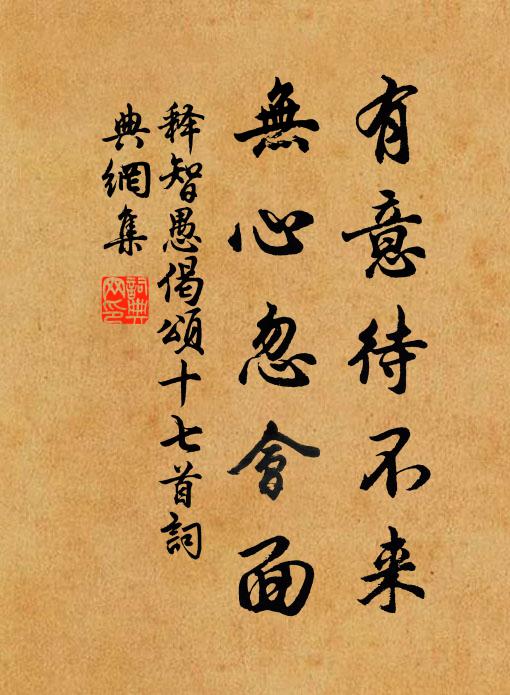 有意待不来
無心忽會面
释智愚偈頌十七首詞
典網集
詞典网印